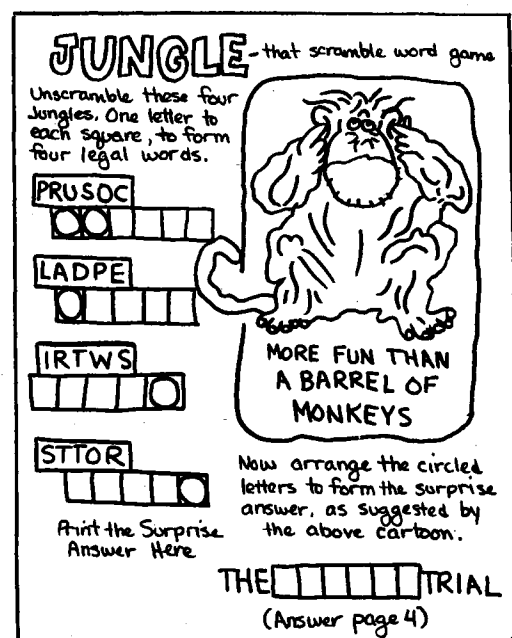 JUNGLE -that scramble word game
Unscramble these four
Jungles. One letter to
each square, to form
four legal words.
PRUSOC
LADPE
IRTWS
STTOR
Print the Surprise
Answer Here
MORE FUN THAN
A BARREL OF
MONKEYS
Now arrange the circled
letters to form the surprise
answer, as suggested by
the above cartoon.
THE TRIAL
(Answer page 4)